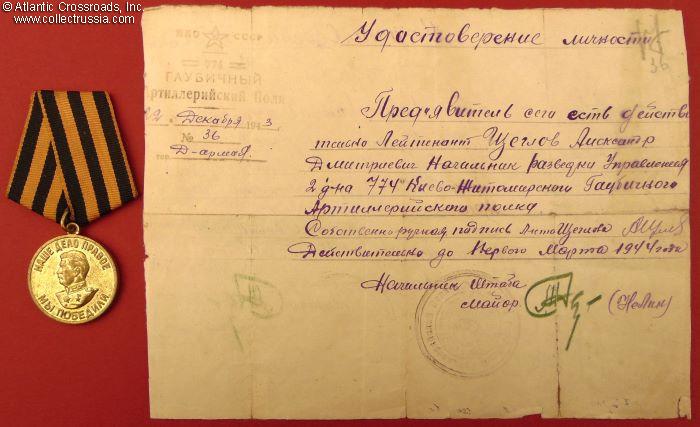 © Atlantic Crossroads, Inc.
www.collectrussia.com
НКО СССР
774
ГАУБИЧНЫЙ
Артиллерийский Полк
22 Декабря 1943
№ 36
Д-армая
Удостоверение личности
36
Пред'явитель сего есть действи
тельно Лейтенант Щеглов
Дмитриевич Начальник разведки Управления
2 д-на 774 Киево-Житомирского Гаубичного
Артиллерийского полка
Собственноручная подпись Щеглова
Действительно до Первого Марта 1944 года
Начальник Штаба
майор
НАШЕ ДЕЛО ПРАВОЕ
МЫ ПОБЕДИЛИ